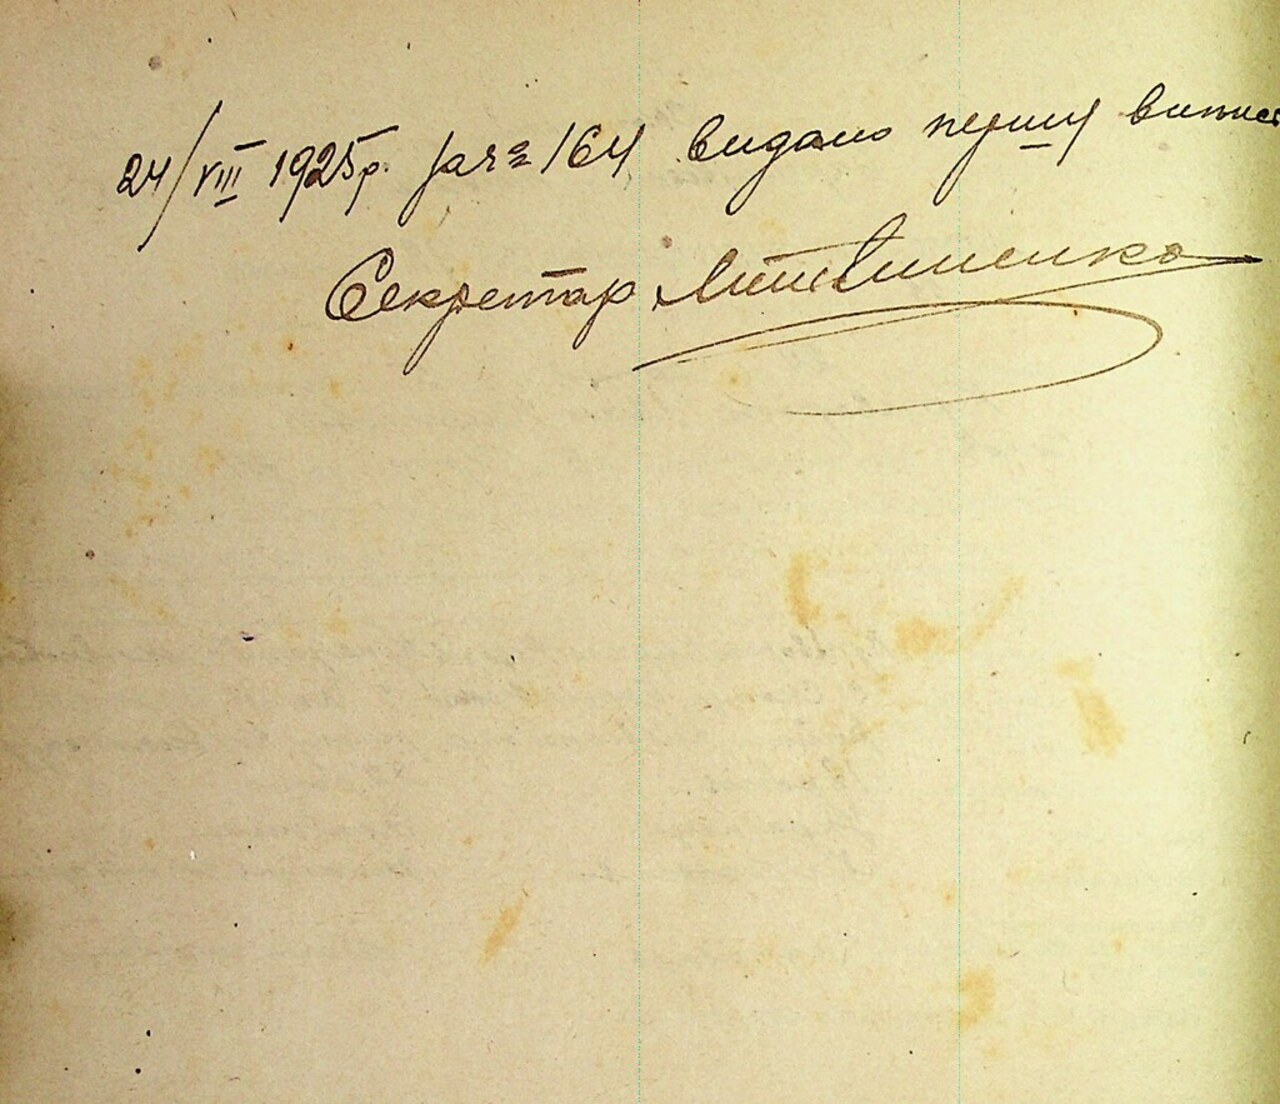 24/VIII 1925р. за № 164 видано першу виписк
Секретар Литвиненко